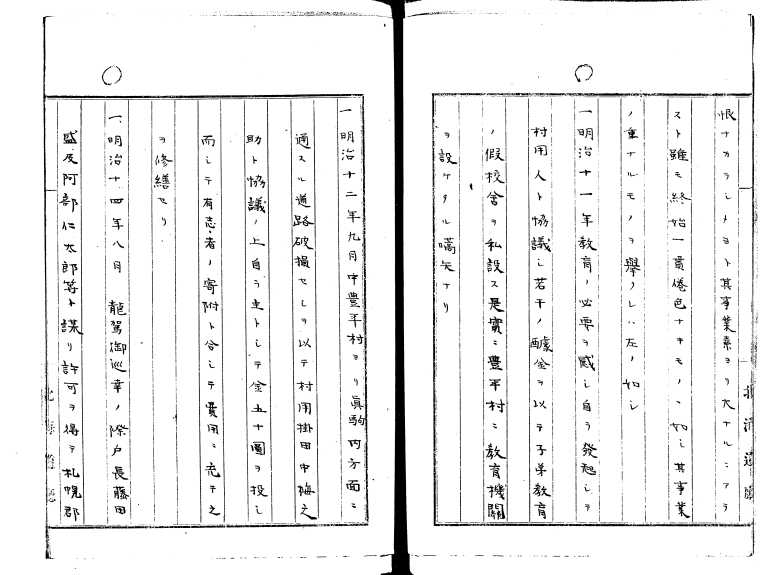 恨ナカラシトヨト其事業素ヨリ大ナルニアラ
スト雖モ終始一貫倦色ナキモノヽ如シ其事業
ノ重ナルモノヲ擧クレハ左ノ如シ
一明治十一年教育ノ必要ヲ感シ自ラ發起シテ
村用人ト協議シ若干ノ醵金ヲ以テ子弟教育
ノ假校舍ヲ私設ス是實ニ豊平村ニ教育機關
ヲ設ケタル嚆矢ナリ
北海道廳
一明治十二年九月中豊平村ヨリ眞駒内方面ニ
通スル道路破損セシヲ以テ村用掛田中梅之
助ト協議ノ上自ラ主トシテ金五十圓ヲ投シ
而シテ有志者ノ寄附ト合シテ費用ニ充テ之
ヲ修繕セリ
一明治十四年八月 龍駕御巡幸ノ際戸長藤田
盛及阿部仁太郎等ト謀リ許可ヲ得テ札幌郡
北海道廳